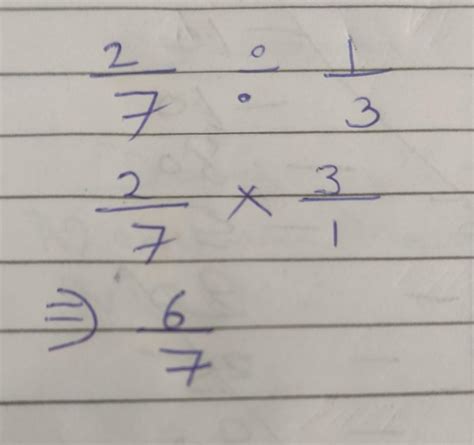 2/7 ÷ 1/3
2/7 × 3/1
⇒ 6/7